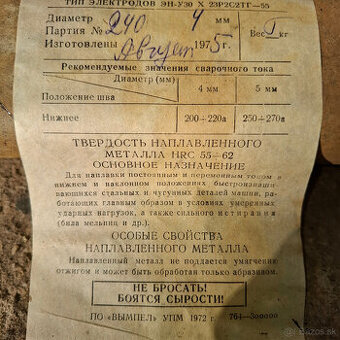 ТИП ЭЛЕКТРОДОВ ЭН-У30 Х 23Р2С2ТГ—55
Диаметр 4 мм
Партия № 240 Вес 1 кг
Изготовлены Август 1975 г.
Рекомендуемые значения сварочного тока
Диаметр (мм)
Положение шва 4 мм 5 мм
Нижнее 200÷220а 250÷270а
ТВЕРДОСТЬ НАПЛАВЛЕННОГО
МЕТАЛЛА HRC 55—62
ОСНОВНОЕ НАЗНАЧЕНИЕ
Для наплавки постоянным и переменным током в
нижнем и наклонном положениях быстроизнаши-
вающихся стальных и чугунных деталей машин, ра-
ботающих главным образом в условиях умеренных
ударных нагрузок, а также сильного истирания
(била мельниц и др.).
ОСОБЫЕ СВОЙСТВА
НАПЛАВЛЕННОГО МЕТАЛЛА
Наплавленный металл не поддается умягчению
отжигом и может быть обработан только абразивом.
НЕ БРОСАТЬ!
БОЯТСЯ СЫРОСТИ!
ПО «ВЫМПЕЛ» УПМ 1972 г. 761—300000
bazos.sk